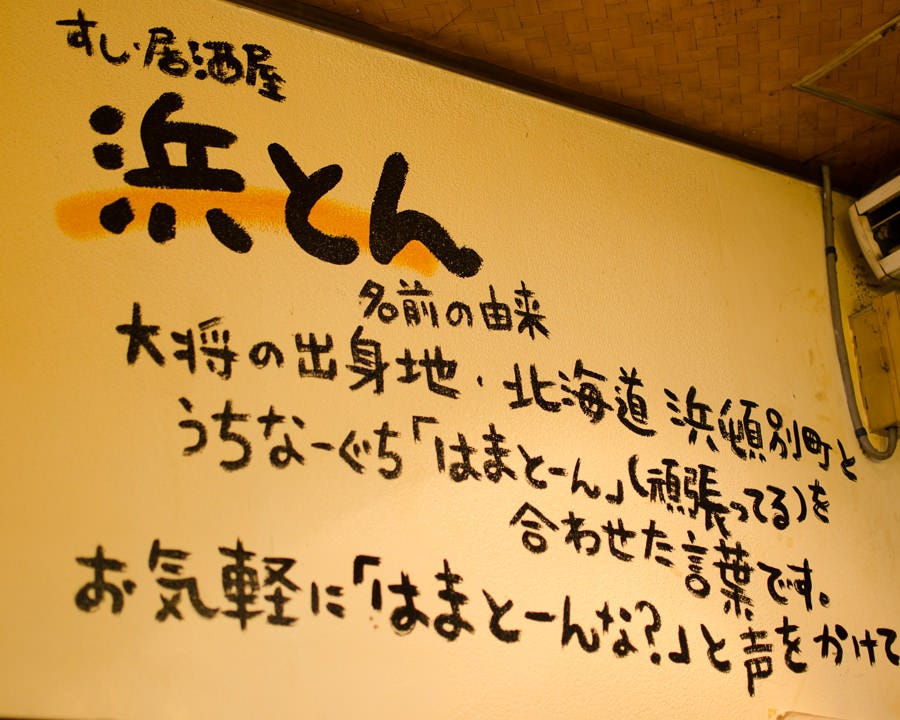 すし・居酒屋
浜とん
名前の由来
大将の出身地・北海道 浜頓別町と
うちなーぐち「はまとーん」(頑張ってる)を
合わせた言葉です。
お気軽に「はまとーんな?」と声をかけて